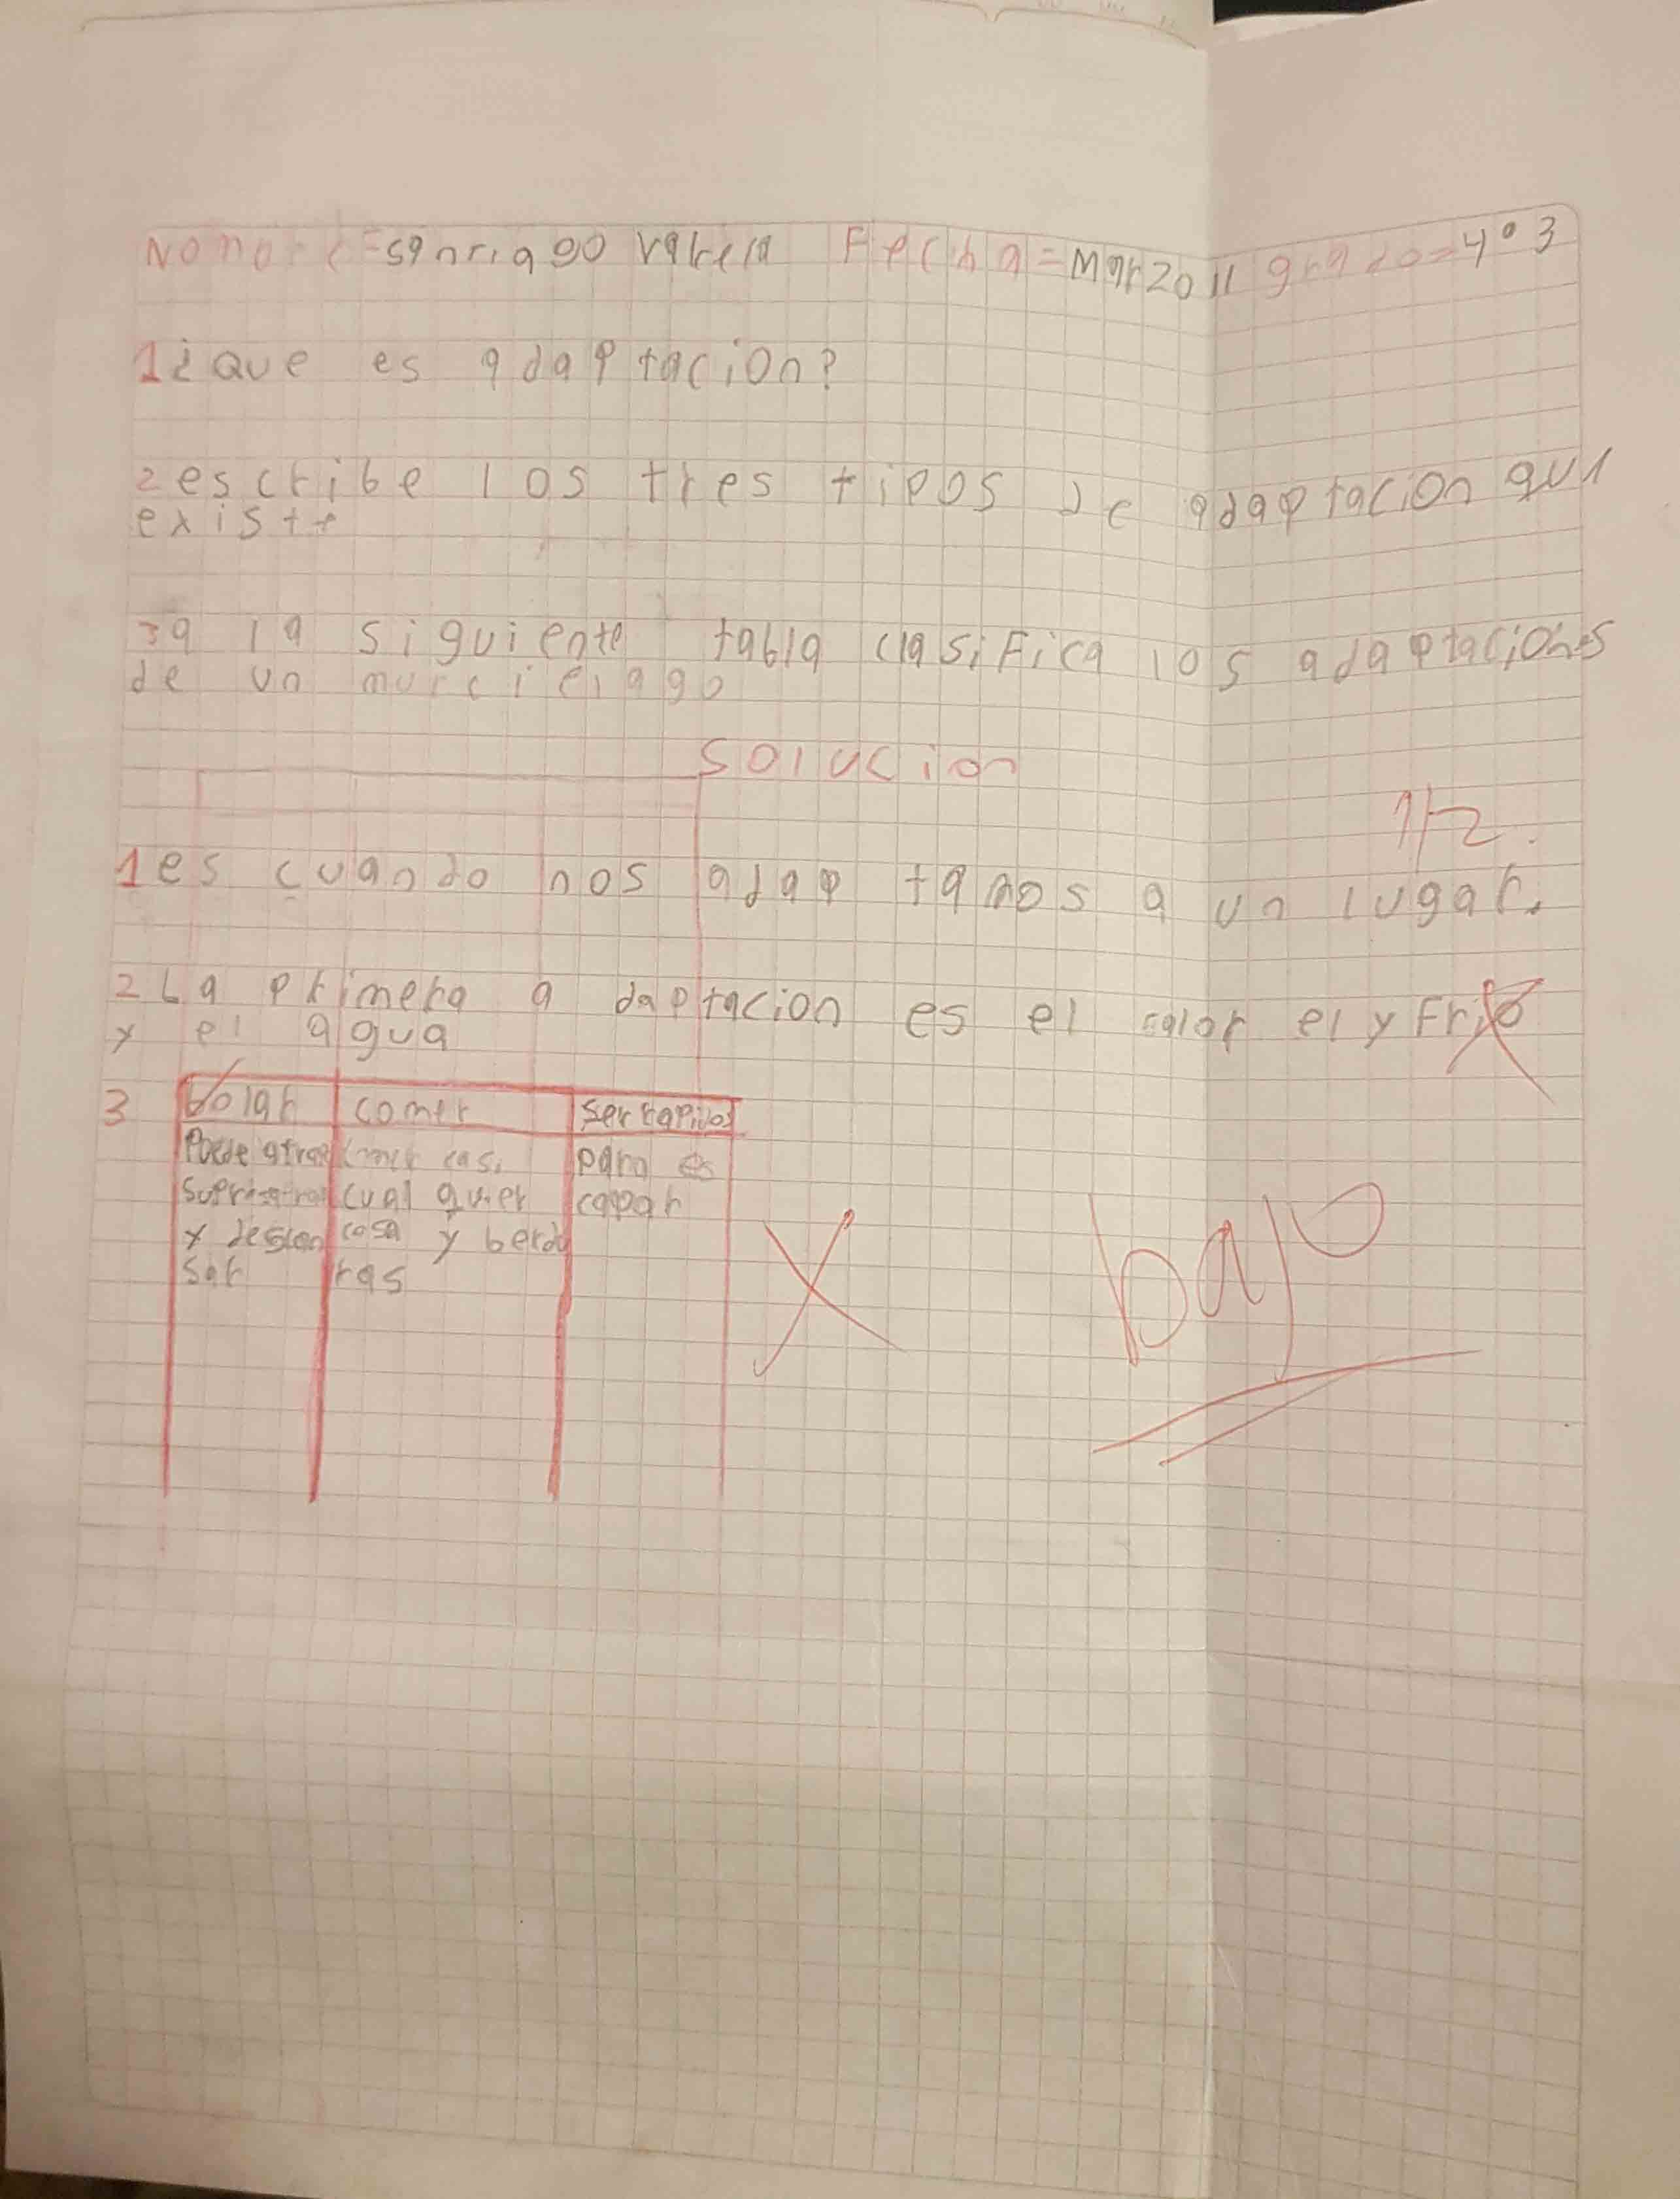 Nombre=Santiago Varela Fecha=Marzo 11 grado=4°3
1¿que es adaptacion?
2escribe los tres tipos de adaptacion que
existe
3a la siguiente tabla clasifica los adaptaciones
de un murcielago
Solucion
1/2.
1es cuando nos adaptamos a un lugar.
2La primera adaptacion es el calor el y Frio
y el agua
3 bolar comer ser rapidos
Puede atrar comer casi para es
cual quier capar
y descan cosa y berdu
sar ras
bajo